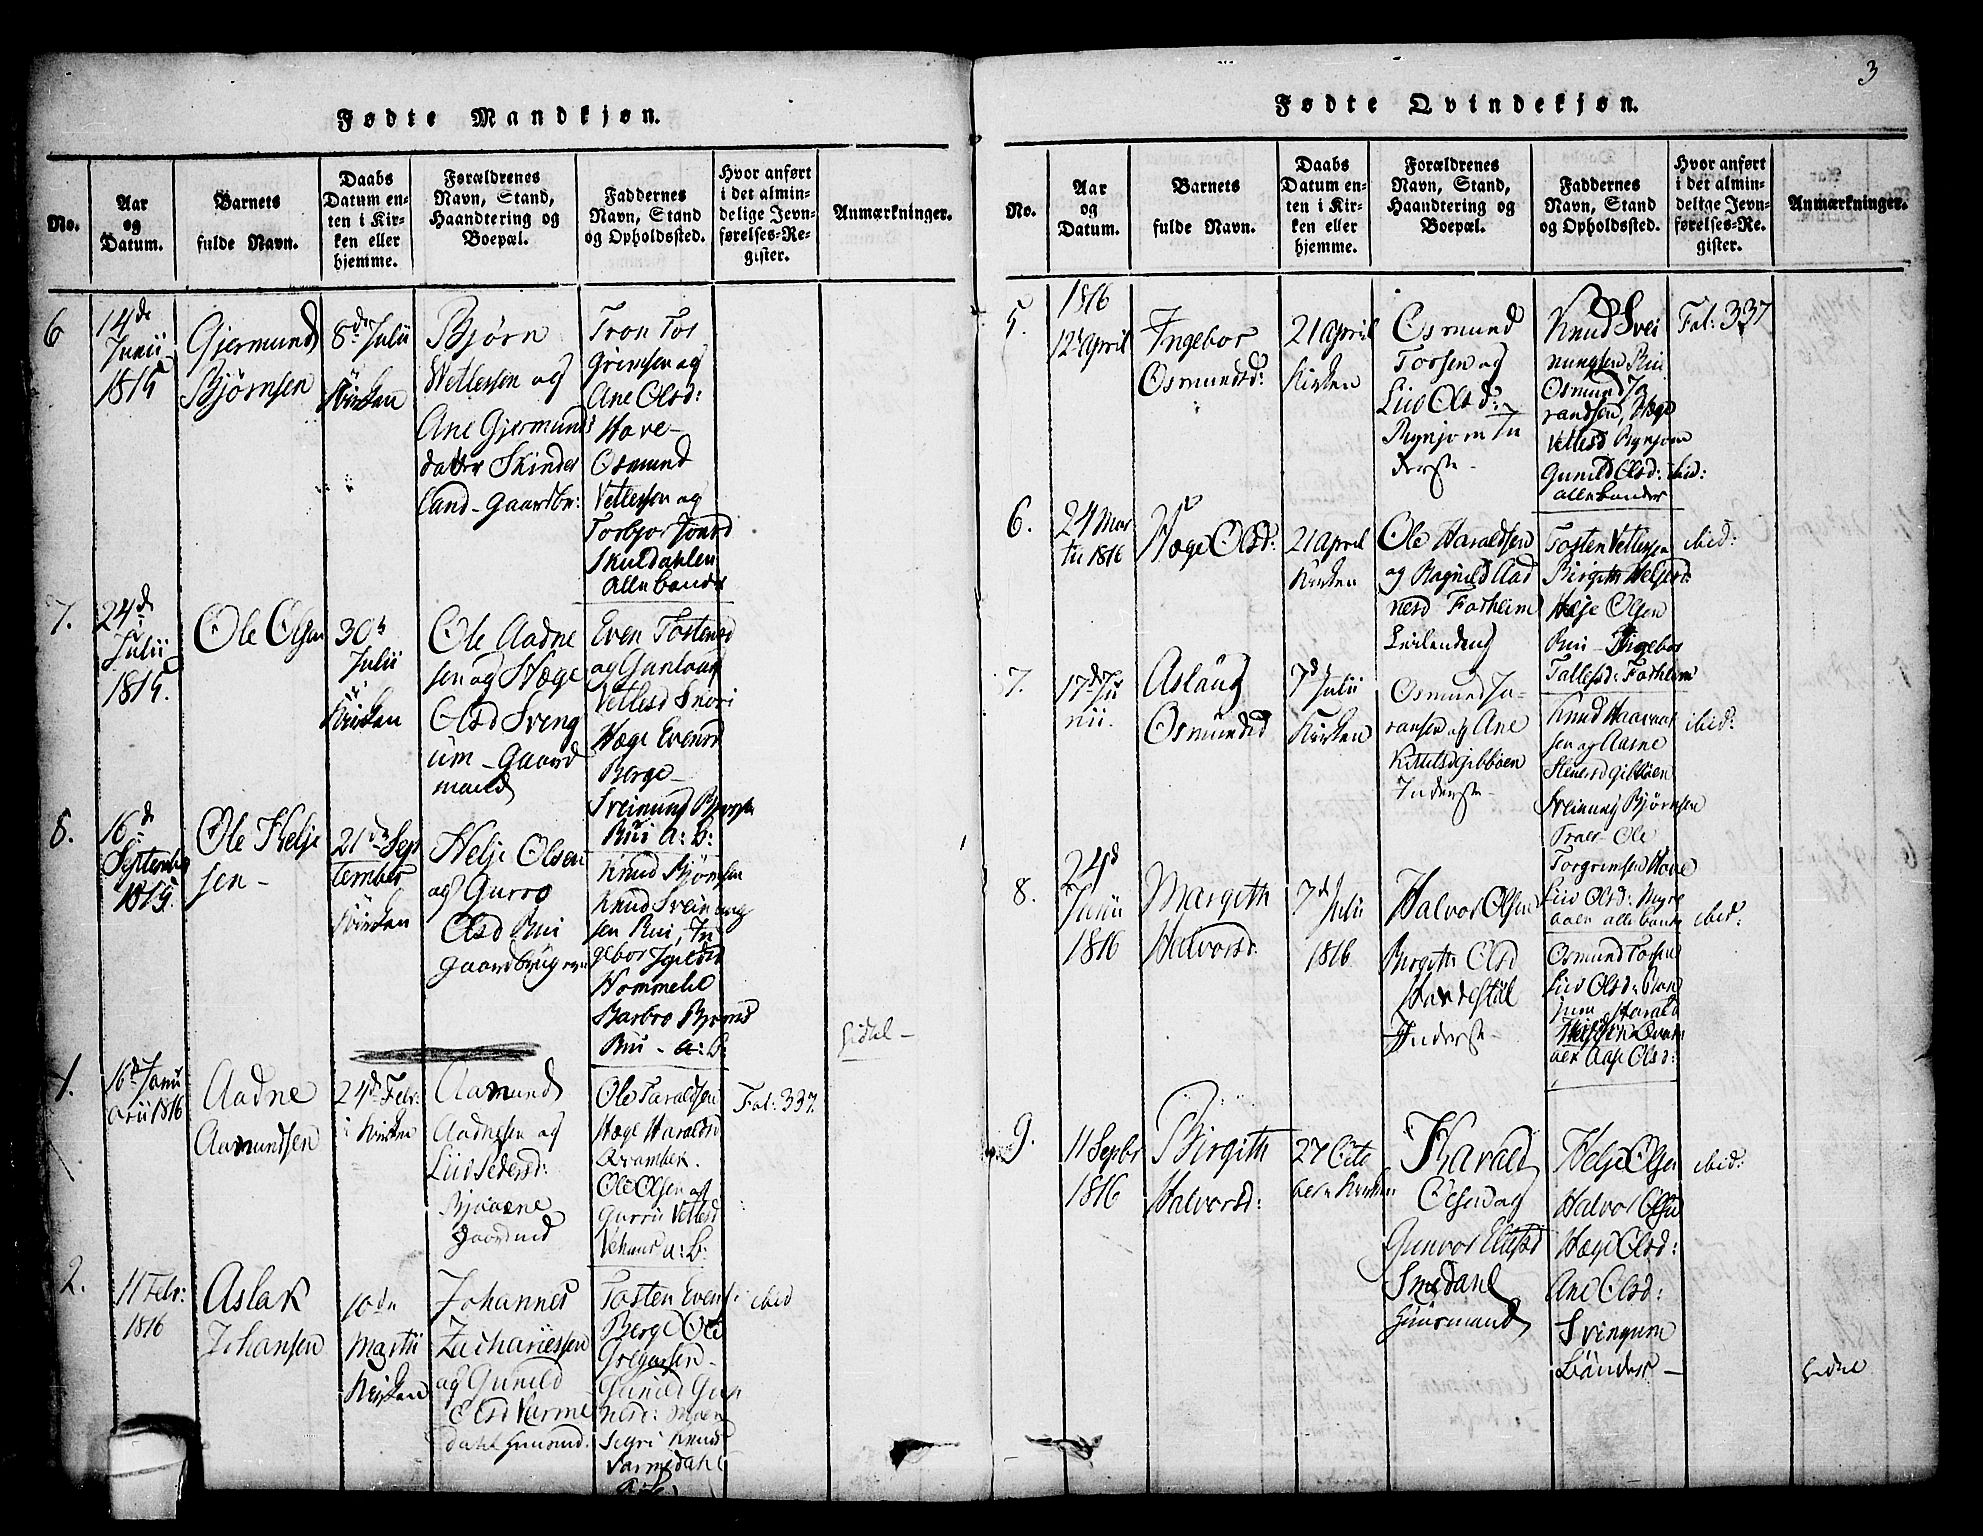 3
Fødte Mandkjøn.
No.
Aar
og
Datum.
Barnets
fulde Navn.
Daabs
Datum en-
ten i Kir-
ken eller
hjemme.
Forældrenes
Navn, Stand,
Haandtering og
Boepæl.
Faddernes
Navn, Stand
og Opholdssted.
Hvor anført
i det almin-
delige Jevn-
førelses-Re-
gister.
Anmærkninger.
6
14de
Junii
1815
Gjermund
Bjørnsen
8de Julii
Kirken
Bjørn
Vetlesen og
Ane Gjermunds
datter Skinder
land - Gaardbr:
Tron Tor
grimsen og
Ane Olsd:
Hove-
Osmund
Vetlesen og
Torbjor Jonsd
Skuldahlen
alle bønder
7.
24de
Julii
1815.
Ole Olsen
30te
Julii
Kirken
Ole Aadne
sen og Hæge
Olsd Sveng
um - Gaard
mand
Even Tostensd
og Gunlaug
Vetlesd
Hæge Evensd
Berge-
Sveinung
Rui a: b:
8.
16de
September
1815.
Ole Helje
sen-
21de Sep
tember
Kirken
Helje Olsen
og Gurro
Olsd Rui
Gaardbrugere
Knud Bjørnsen
Knud Sveinung
sen Rui, In
gebor
Hommelie
Barbro Bjørnsd
Rui - a: b:
1.
16de Janu
arii 1816
Aadne
Aamundsen
24de Febr:
i Kirken
Aamund
Aadnesen og
Liv Pedersd:
Gaardmd
Ole Taraldsen
Hæge Haraldsd
Ole Olsen og
Gurru Vetlesd
a: b:
Fol: 337.
2.
11 Febr:
1816
Aslak
Johansen
10de
Martii
Kirken
Johannes
Zachariesen
og Gunild
Olsd Varme
dahl Huusmd.
Tosten Evens
Berge Ole
Gregarsen-
Gunild
Sigri Knuds
Varmedahl
ibid
Fødte Qvindekjøn.
No.
Aar
og
Datum.
Barnets
fulde Navn.
Daabs
Datum en-
ten i Kir-
ken eller
hjemme.
Forældrenes
Navn, Stand,
Haandtering og
Boepæl.
Faddernes
Navn, Stand
og Opholdssted.
Hvor anført
i det almin-
delige Jevn-
førelses-Re-
gister.
Anmærkninger.
5.
1816
12te April
Ingebor
Osmundsd:
21 April
Kirken
Osmund
Torsen og
Liv Olsd:
Rynjom In
derste-
Knud Svei
nungsen Rui
Osmund Ja
randsen, Hæge
Vetlesd Rynjom
Gunild Olsd: ibid:
alle bønder
Fol: 337
6.
24 Mar
tii 1816
Hæge Olsd:
21 April
Kirken
Ole Haraldsen
og Ragnild Aad
nesd Forheim
Leilending
Tosten Vetlesen
Birgith Heljesd:
Helje Olsen
Rui - Ingebor
Tallefsd: Forheim
ibid:
7.
17de Ju
nii.
Aslaug
Osmundsd
7d Julii
Kirken
Osmund Ja-
ransen og Ane
Kittelsd Gibbøen
Inderst-
Knud Haavar
sen og Aasne
Stenersd Gibbøen
Sveinung Bjørnsen
Traer - Ole
Torgrimsen Hove
Liv Olsd: Myre
boen alle bønder
ibid:
8.
24d
Junii
1816
Margith
Halvorsd:
7d Julii
1816
Halvor Olsen
Birgith Olsd
Inderst-
Osmund Torsen
Liv Olsd: Ryn
jum, Harald
Aase Olsd:
ibid:
9.
11 Sepbr
1816
Birgith
Halvorsd:
27 Octo
ber i Kirken
Harald
Olsen og
Gunvor
Smedahl
Huusmand
Helje Olsen
Halvor Olsen
Hæge Olsd:
Ane Olsd:
Svingum
Bønder-
ibid: